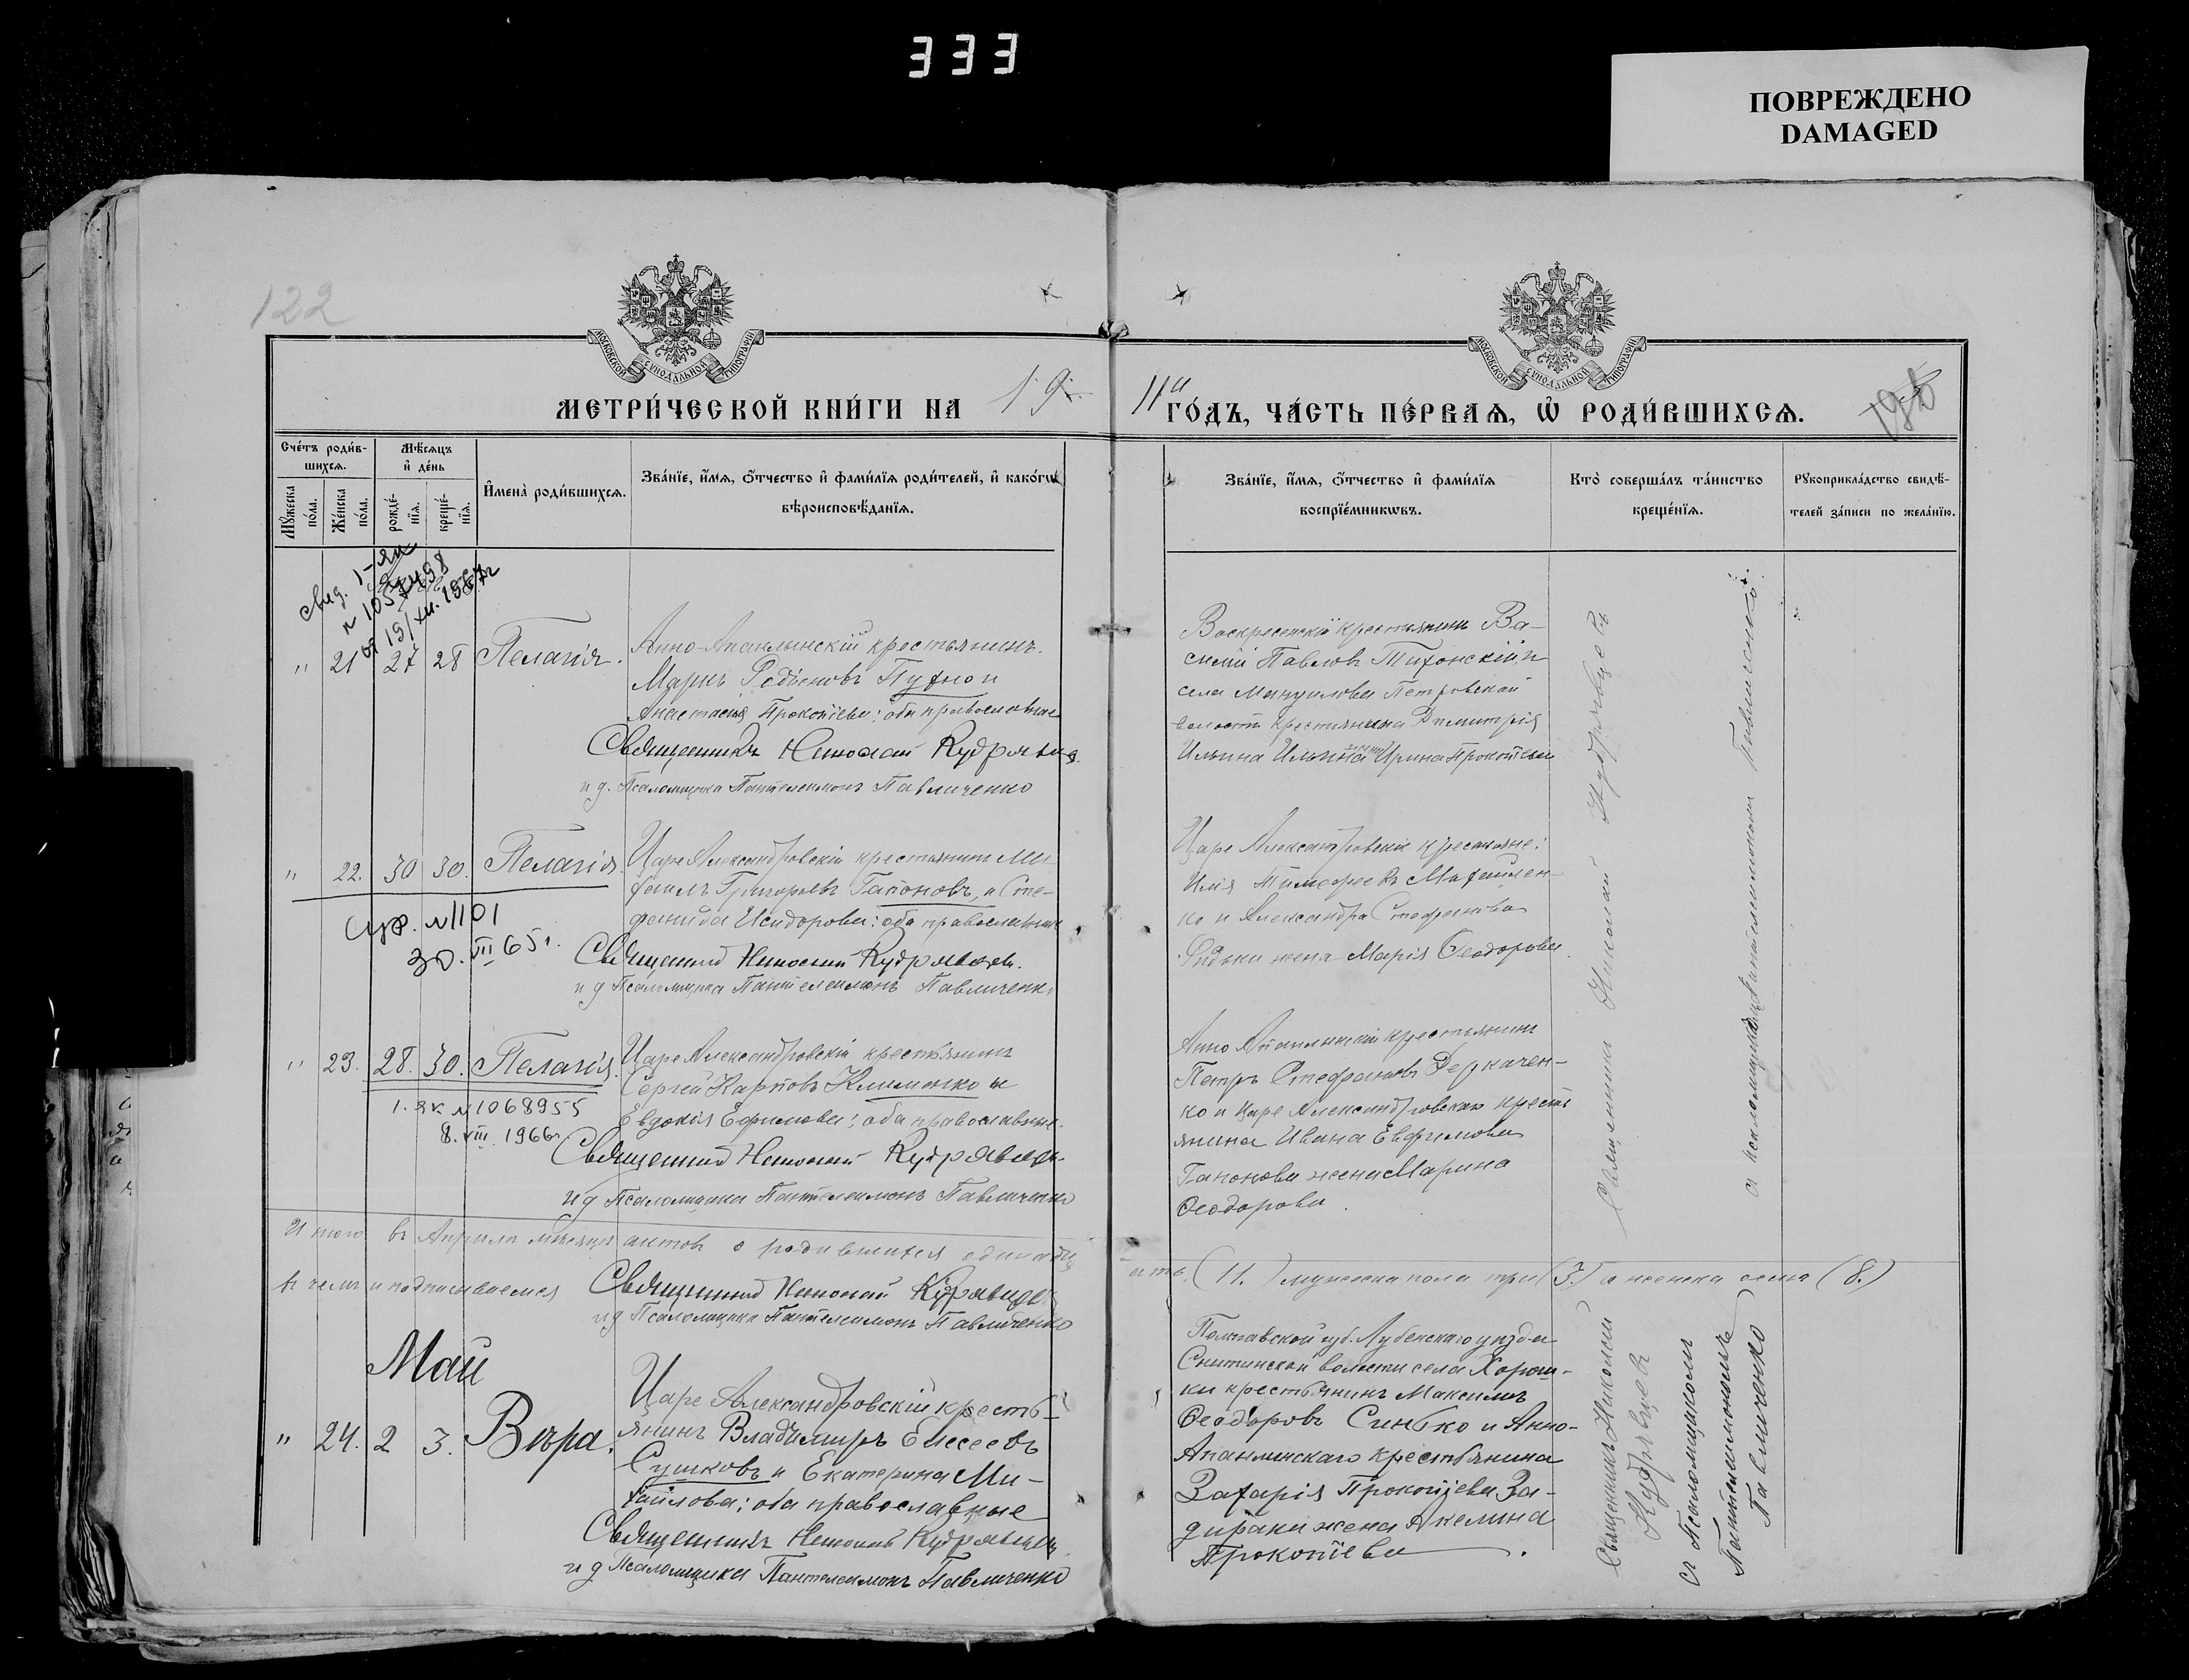 333
ПОВРЕЖДЕНО
DAMAGED
122
МОСКОВСКОЙ СѴНОДАЛЬНОЙ ТИПОГРАФІИ
МОСКОВСКОЙ СѴНОДАЛЬНОЙ ТИПОГРАФІИ
МЕТРИ́ЧЕСКОЙ КНИ́ГИ НА 19
11 ГО́ДЪ, ЧА́СТЬ ПЕ́РВАЯ, Ѿ РОДИ́ВШИХСЯ.
Сче́тъ роди́вшихся.
Мѣ́сяцъ и де́нь
Мꙋ́жеска по́ла.
Же́нска по́ла.
рожде́нїя.
креще́нїя.
И҆мена̀ роди́вшихся.
Зва́нїе, и҆́мя, ѻ҆́тчество и҆ фами́лїя роди́телей, и҆ како́гѡ
вѣроисповѣ́данїя.
Зва́нїе, и҆́мя, ѻ҆́тчество и҆ фами́лїя
воспрїе́мникѡвъ.
Кто̀ соверша́лъ та́инство
креще́нїя.
Рꙋкоприкла́дство свидѣ́-
телей за́писи по жела́нїю.
свид. 1-як
от 19/XII. 1967г
" 21 27 28 Пелагія.
Анно-Апанлынскій крестьянинъ
Маркъ Родіоновъ Пухно и
Анастасія Прокопіева; оба православные
Священникъ Николай Кудрявцев
и д. Псаломщика Пантелеимонъ Павличенко
Воскресенскій крестьянинъ Ва-
силій Павловъ Тихонскій и
села Мануилова Петровской
волости крестьянина Димитрія
Ильина Ильина жена Ирина Прокопіева
" 22. 30 30. Пелагія.
Царе Александровскій крестьянинъ Ми-
хаилъ Григорьевъ Гапоновъ, и Сте-
фанида Исидорова: оба православные
Священник Николай Кудрявцев.
и д Псаломщика Пантелеимонъ Павличенко
N1101
30. VIII 65г.
Царе Александровскіе крестьяне:
Илія Тимофеевъ Михайлен-
ко и Александра Стефанова
жена Марія Ѳеодорова.
" 23. 28. 30. Пелагія.
1. як N 1068955
8. VIII 1966г
Царе Александровскій крестьянинъ
Сергей Карповъ Клименко и
Евдокія Ефимова; оба православные.
Священник Николай Кудрявцев
и д Псаломщика Пантелеимонъ Павличенко
Анно Апанлынскій крестьянинъ
Петръ Стефановъ Деркачен-
ко и Царе Александровскаго кресть
янина Ивана Евфимова
Гапонова жена Марина
Ѳеодорова.
Священникъ Николай Кудрявцевъ
и псаломщикомъ Пантелеимономъ Павличенко.
Итого въ Апрѣлѣ мѣсяцѣ актовъ о родившихся одинадц
ать (11.) мужеска пола три (3.) а женска осмь (8.)
въ чемъ и подписываемся
Священник Николай Кудрявцев
и д Псаломщика Пантелеимонъ Павличенко
Май
" 24. 2 3. Вѣра.
Царе Александровскій кресть-
янинъ Владимиръ Елисеевъ
Сушковъ и Екатерина Ми-
хайлова; оба православные
Священникъ Николай Кудрявцев
и д Псаломщика Пантелеимонъ Павличенко
Полтавской губ. Лубенскаго уѣзда
Снитинской волости села Хорош-
ки крестьянинъ Максимъ
Ѳеодоровъ Синько и Анно-
Апанлинскаго крестьянина
Захарія Прокопіева За-
дираки жена Акелина
Прокопіева.
Священникъ Николай
Кудрявцевъ
съ Псаломщикомъ
Пантелеимономъ
Павличенко